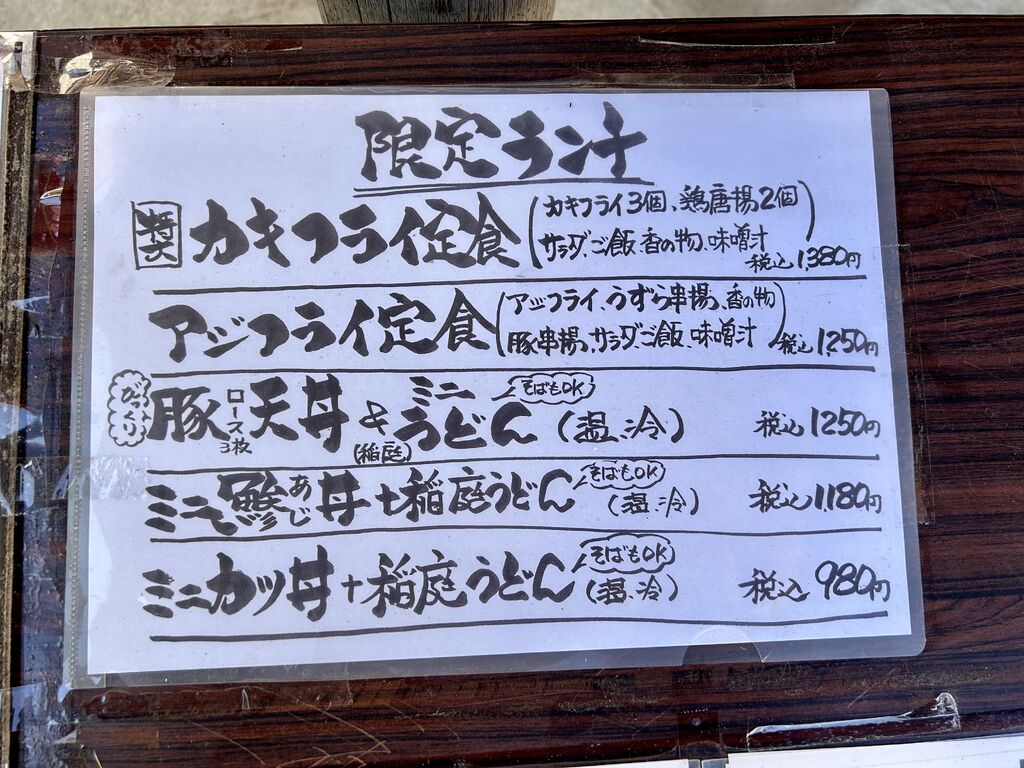 限定ランチ
特大 カキフライ定食 (カキフライ3個、鶏唐揚2個
サラダ、ご飯、香の物、味噌汁)
税込1,380円
アジフライ定食 (アジフライ、うずら串揚、香の物
豚串揚、サラダ、ご飯、味噌汁) 税込1,250円
びっくり 豚ロース3枚天丼 & ミニうどん(稲庭) そばもOK (温、冷) 税込1250円
ミニ鯵あじ丼+稲庭うどん そばもOK (温、冷) 税込1180円
ミニカツ丼+稲庭うどん そばもOK (温、冷) 税込980円